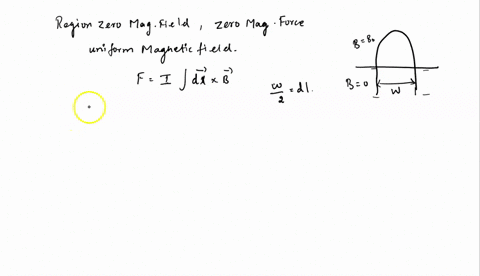 Region zero Mag. field , zero Mag. Force
uniform Magnetic field.
F = I ∫ d\vec{l} × \vec{B}
w/2 = dl.
B = B₀
B = 0
W